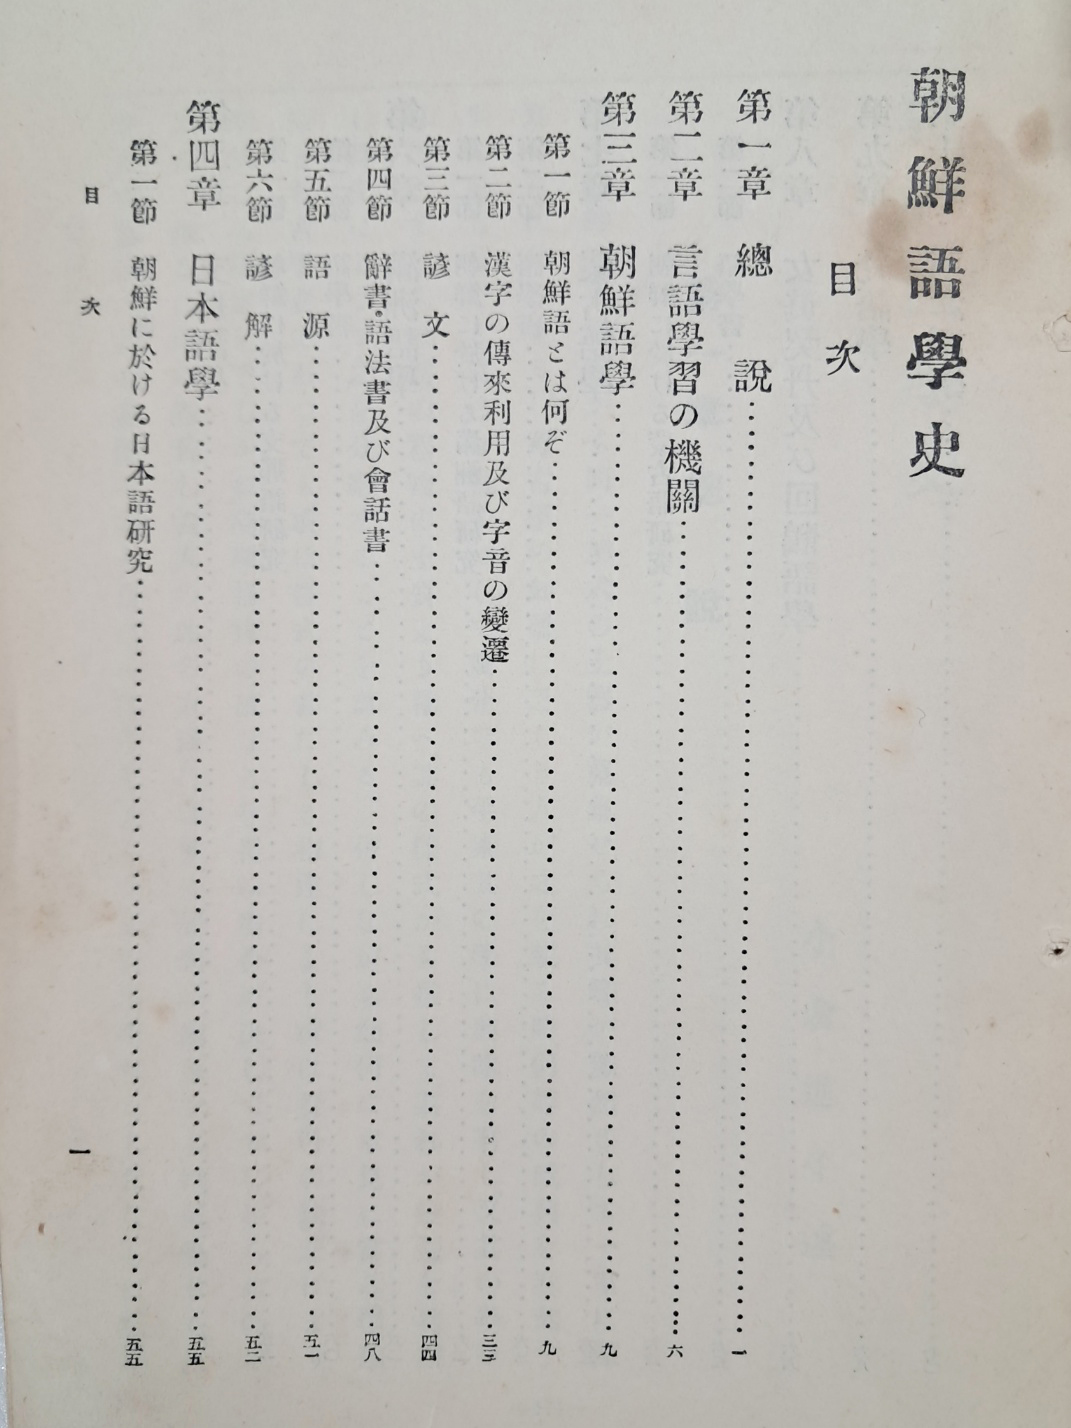 朝鮮語學史
目次
第一章 總說……一
第二章 言語學習の機關……六
第三章 朝鮮語學……九
第一節 朝鮮語とは何ぞ……九
第二節 漢字の傳來利用及び字音の變遷……三三
第三節 諺文……四四
第四節 辭書・語法書及び會話書……四八
第五節 語源……五一
第六節 諺解……五二
第四章 日本語學……五五
第一節 朝鮮に於ける日本語研究……五五
目次
一